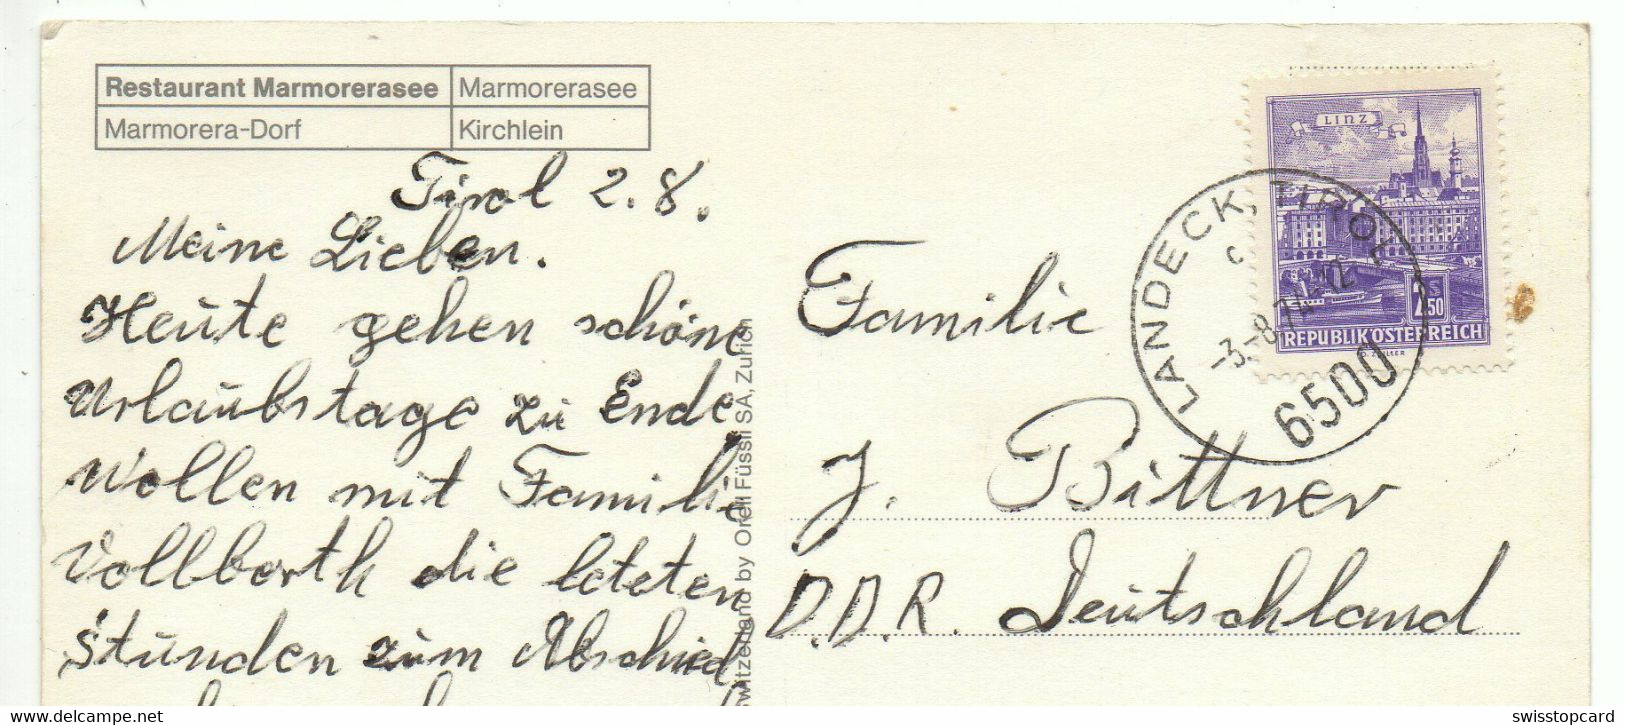 Restaurant Marmorerasee Marmorerasee
Marmorera-Dorf Kirchlein
Tirol 2.8.
Meine Lieben.
Heute gehen schöne
Urlaubstage zu Ende
Wollen mit Familie
Vollborth die letzten
Stunden zum Abschied
witzerland by Orell Füssli SA, Zürich
LINZ
2.50
REPUBLIK ÖSTERREICH
LANDECK, TIROL
c
-3.-8.74-12
6500
Familie
J. Bittner
D.D.R. Deutschland
swisstopcard